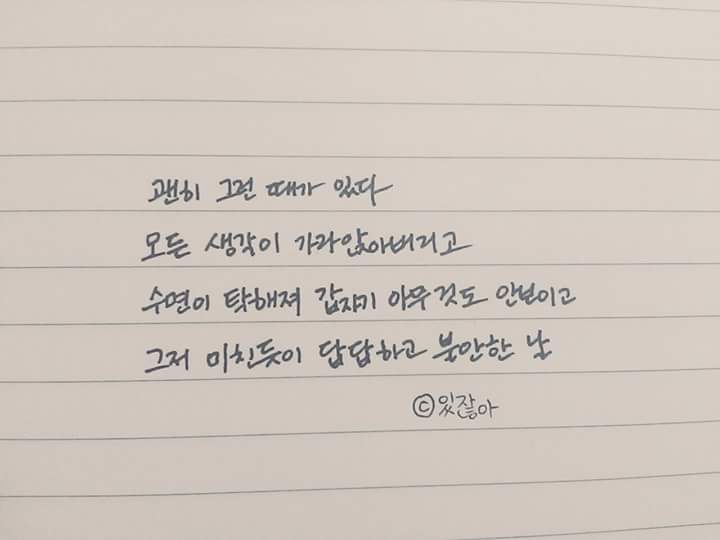 괜히 그런 때가 있다
모든 생각이 가라앉아버리고
수면이 탁해져 갑자기 아무것도 안보이고
그저 미친듯이 답답하고 불안한 날
ⓒ있잖아